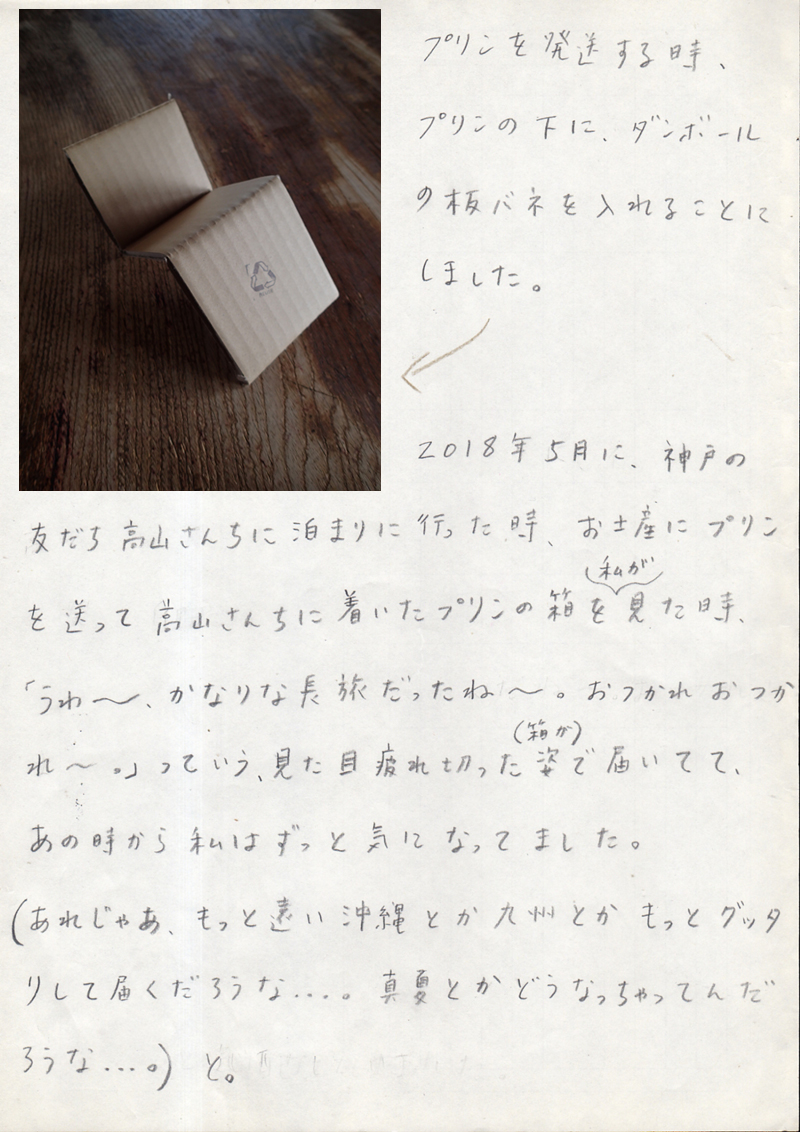 プリンを発送する時、
プリンの下に、ダンボール
の板バネを入れることに
しました。
2018年5月に、神戸の
友だち高山さんちに泊まりに行った時、お土産にプリン
(私が)
を送って高山さんちに着いたプリンの箱を見た時、
「うわ〜、かなりな長旅だったね〜。おつかれおつか
(箱が)
れ〜。」っていう、見た目疲れ切った姿で届いてて、
あの時から私はずっと気になってました。
(あれじゃあ、もっと遠い沖縄とか九州とかもっとグッタ
りして届くだろうな....。真夏とかどうなっちゃってんだ
ろうな....。)と。